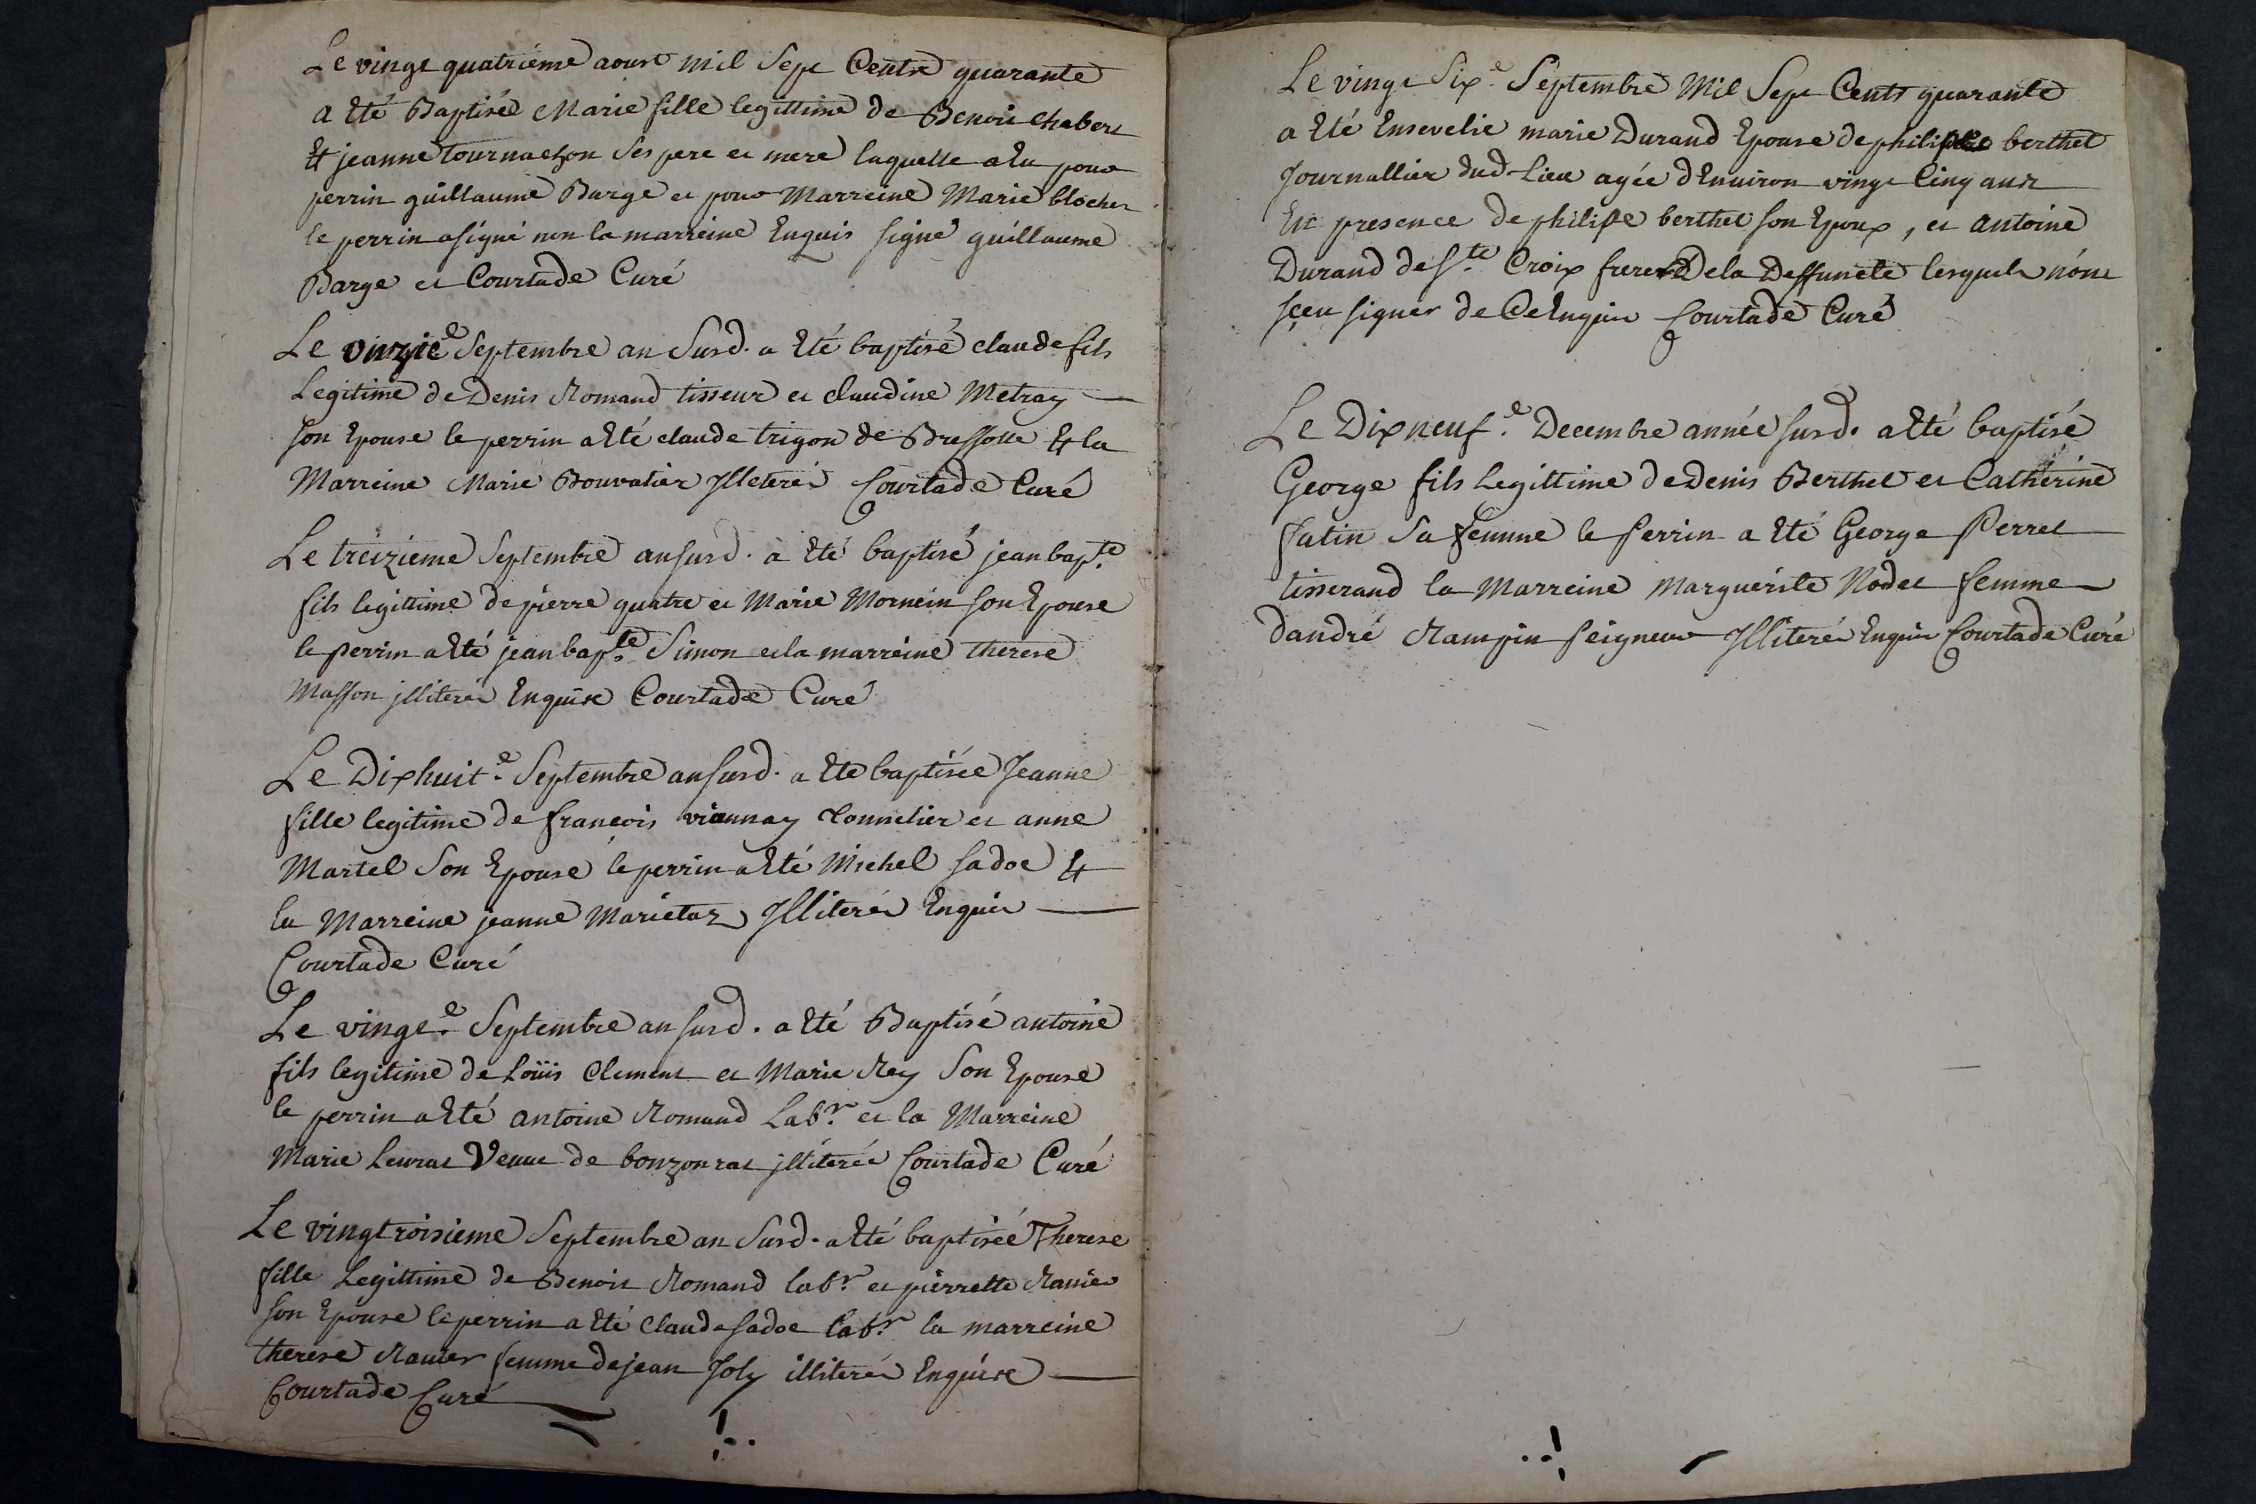 Le vingt quatriéme aoust mil Sept Cents quarante
a Eté Baptisée Marie fille legittime de Benoit chabert
Et jeanne tournachon Ses pere et mere laquelle a Eu pour
perrin guillaume Barge et pour Marreine Marie blochet
le perrin a signé non la marreine Enquis signé guillaume
Barge et Courtade Curé
Le onzie Septembre an Susd. a Eté baptisé claude fils
Legitime de Denis Romand tisseur et claudine Metray
son Epouse le perrin a Eté claude trigon de Bressolle Et la
Marreine Marie Bouvatier Jlleterés Courtade Curé
Le treizieme Septembre an susd. a Eté baptisé jean bapte
fils legittime de pierre quatre et Marie Mornein son Epouse
le perrin a Eté jean bapte Simon et la marreine therese
Masson jlliterés Enquise Courtade Curé
Le Dixhuite Septembre an susd. a Eté baptisée Jeanne
fille legitime de francois viannay tonnelier et anne
Martel Son Epouse le perrin a Eté Michel sadoe Et
la Marreine jeanne Marietaz Jlliterés Enquis
Courtade Curé
Le vingte Septembre an susd. a Eté Baptisé antoine
fils legitime de Loüis Clement et Marie Rey Son Epouse
le perrin a Eté antoine Romand Labr. et la Marreine
Marie Leurat Veuue de bonzonrat jlliterés Courtade Curé
Le vingtroisieme Septembre an Susd. a Eté baptisée Therese
fille Legittime de Benoit Romand labr. et pierrette Ranier
son Epouse le perrin a Eté Claude sadoe labr. la marreine
therese Ranier femme de jean Joly illiterés Enquise
Courtade Curé
Le vingt Sixe Septembre Mil Sept Cents quarante
a Eté Ensevelie marie Durand Epouse de philipe berthet
Journallier dud. Lieu agée d'Enuiron vingt Cinq ans
En presence de philipe berthet son Epoux, et antoine
Durand de Ste Croix frere De la Deffuncte lesquels n'ont
sçeu signer de Ce Enquis Courtade Curé
Le Dixneufe Decembre année susd. a Eté baptisé
George fils Legittime de Denis Berthet et Catherine
fatin Sa femme le Perrin a Eté George Perret
tisserand la Marreine Marguerite Nodet femme
dandré Rampin peigneur Jlliterés Enquis Courtade Curé